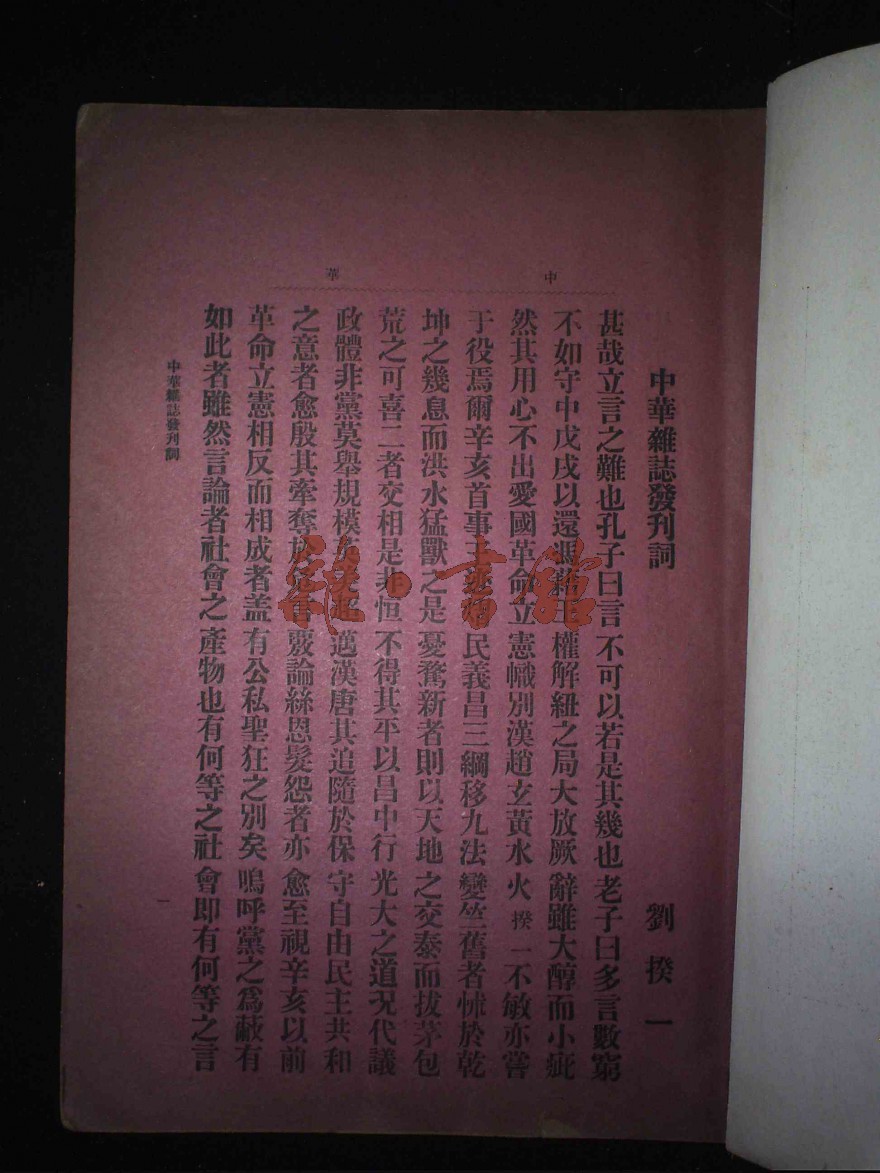 中
華
中華雜誌發刊詞
劉揆一
甚哉立言之難也孔子曰言不可以若是其幾也老子曰多言數窮
不如守中戊戌以還馮藉王權解紐之局大放厥辭雖大醇而小疵
然其用心不出愛國革命立憲幟別漢趙玄黃水火揆一不敏亦嘗
于役焉爾辛亥首事民義昌三綱移九法變竺舊者怵於乾
坤之幾息而洪水猛獸之是憂騖新者則以天地之交泰而拔茅包
荒之可喜二者交相是非恒不得其平以昌中行光大之道況代議
政體非黨莫舉規模邁漢唐其追隨於保守自由民主共和
之意者愈殷其牽奪於論絲恩髮怨者亦愈至視辛亥以前
革命立憲相反而相成者蓋有公私聖狂之別矣嗚呼黨之爲蔽有
如此者雖然言論者社會之產物也有何等之社會即有何等之言
中華雜誌發刊詞
一
雜·書館